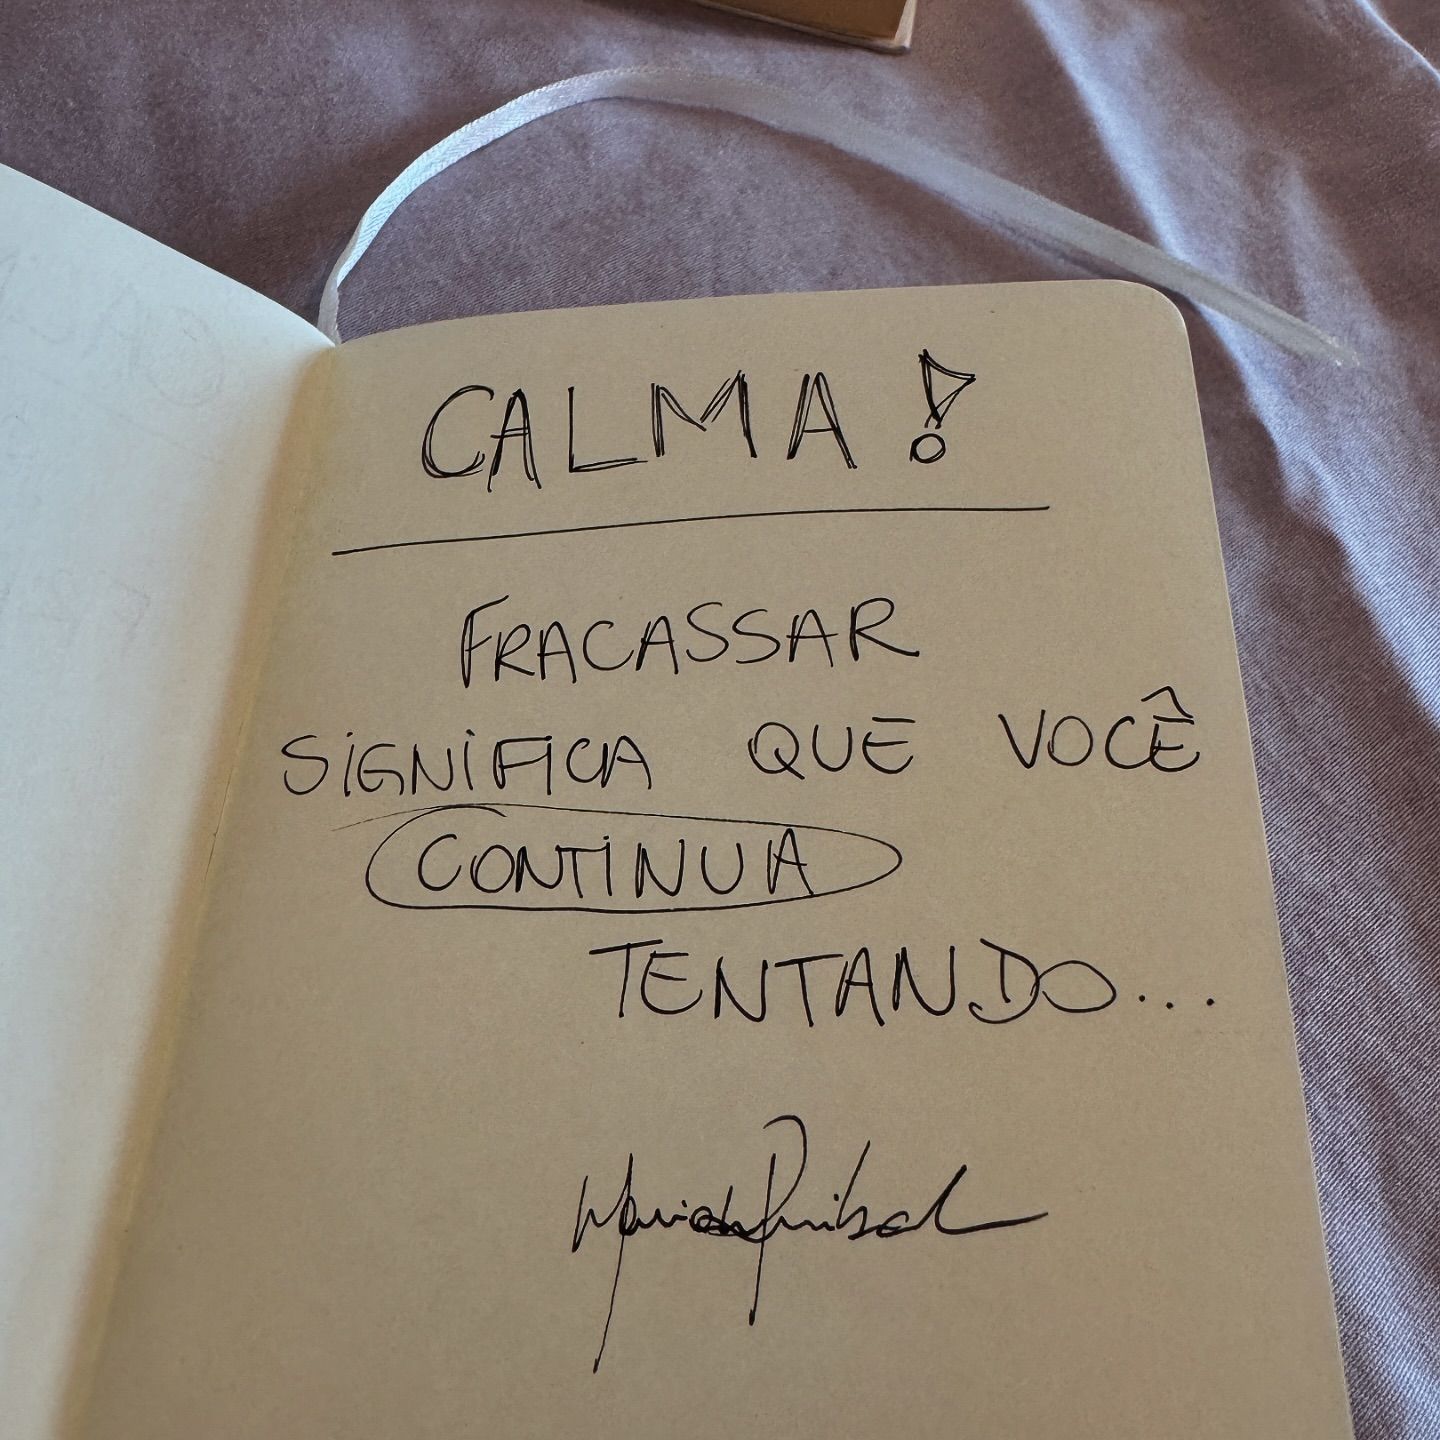 CALMA!
FRACASSAR
SIGNIFICA QUE VOCÊ
CONTINUA
TENTANDO...